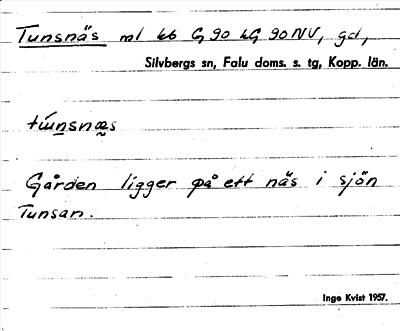 Tunsnäs ml kb G 90 hG 90 NV, gd,
Silvbergs sn, Falu doms. s. tg, Kopp. län.
tɯ́nsnæs
Gården ligger på ett näs i sjön
Tunsan.
Inge Kvist 1957.